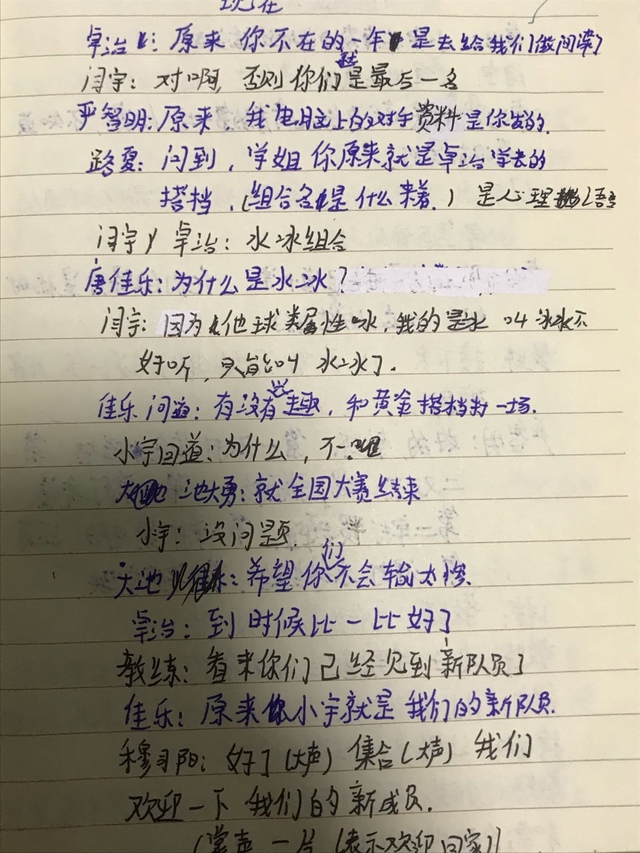 现在
卓治: 原来你不在的一年是去给我们做间谍了
闫宇: 对啊, 否则你们就是最后一名
严智明: 原来, 我电脑上的对手资料是你发的.
路夏: 问到, 学姐你原来就是卓治学长的
搭档, (组合名是什么来着.) 是心理
闫宇 卓治: 水冰组合
唐佳乐: 为什么是水冰?
闫宇: 因为他球类属性冰, 我的是水 叫冰水不
好听, 只能叫 水冰了.
佳乐问道: 有没有兴趣, 和黄金搭档打一场.
小宇回道: 为什么, 不呢
池大勇: 就全国大赛结束
小宇: 没问题.
大池: 希望你们不会输太惨.
卓治: 到时候比一比好了
教练: 看来你们已经见到新队员了
佳乐: 原来小宇就是我们的新队员.
穆习阳: 好了 (大声) 集合 (大声) 我们
欢迎一下我们的新成员.
(掌声一片 (表示欢迎回家))